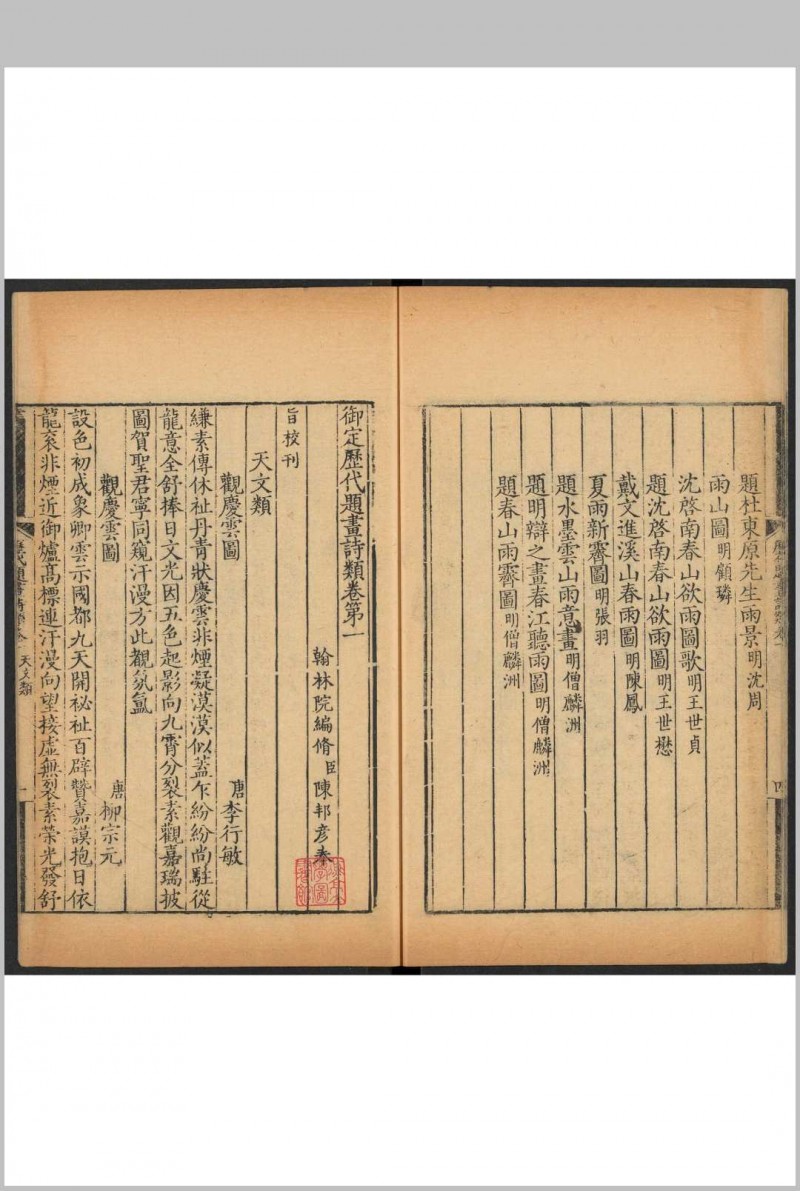 題杜東原先生雨景明沈周
雨山圖明顧璘
沈啓南春山欲雨圖歌明王世貞
題沈啓南春山欲雨圖明王世懋
戴文進溪山春雨圖明陳鳳
夏雨新霽圖明張羽
題水墨雲山雨意畫明僧麟洲
題明辯之畫春江聽雨圖明僧麟洲
題春山雨霽圖明僧麟洲
四
御定歷代題畫詩類卷第一
翰林院編脩臣陳邦彥奉
旨校刊
天文類
觀慶雲圖 唐李行敏
縑素傳休祉丹青狀慶雲非煙凝漠漠似葢乍紛紛尚駐從
龍意全舒捧日文光因五色起影向九霄分裂素觀嘉瑞披
圖賀聖君寧同窺汗漫方此覩氛氳
觀慶雲圖 唐柳宗元
設色初成象卿雲示國都九天開祕祉百辟贊嘉謨抱日依
龍衮非煙近御爐高標連汗漫向望接虛無裂素榮光發舒
天文類
一